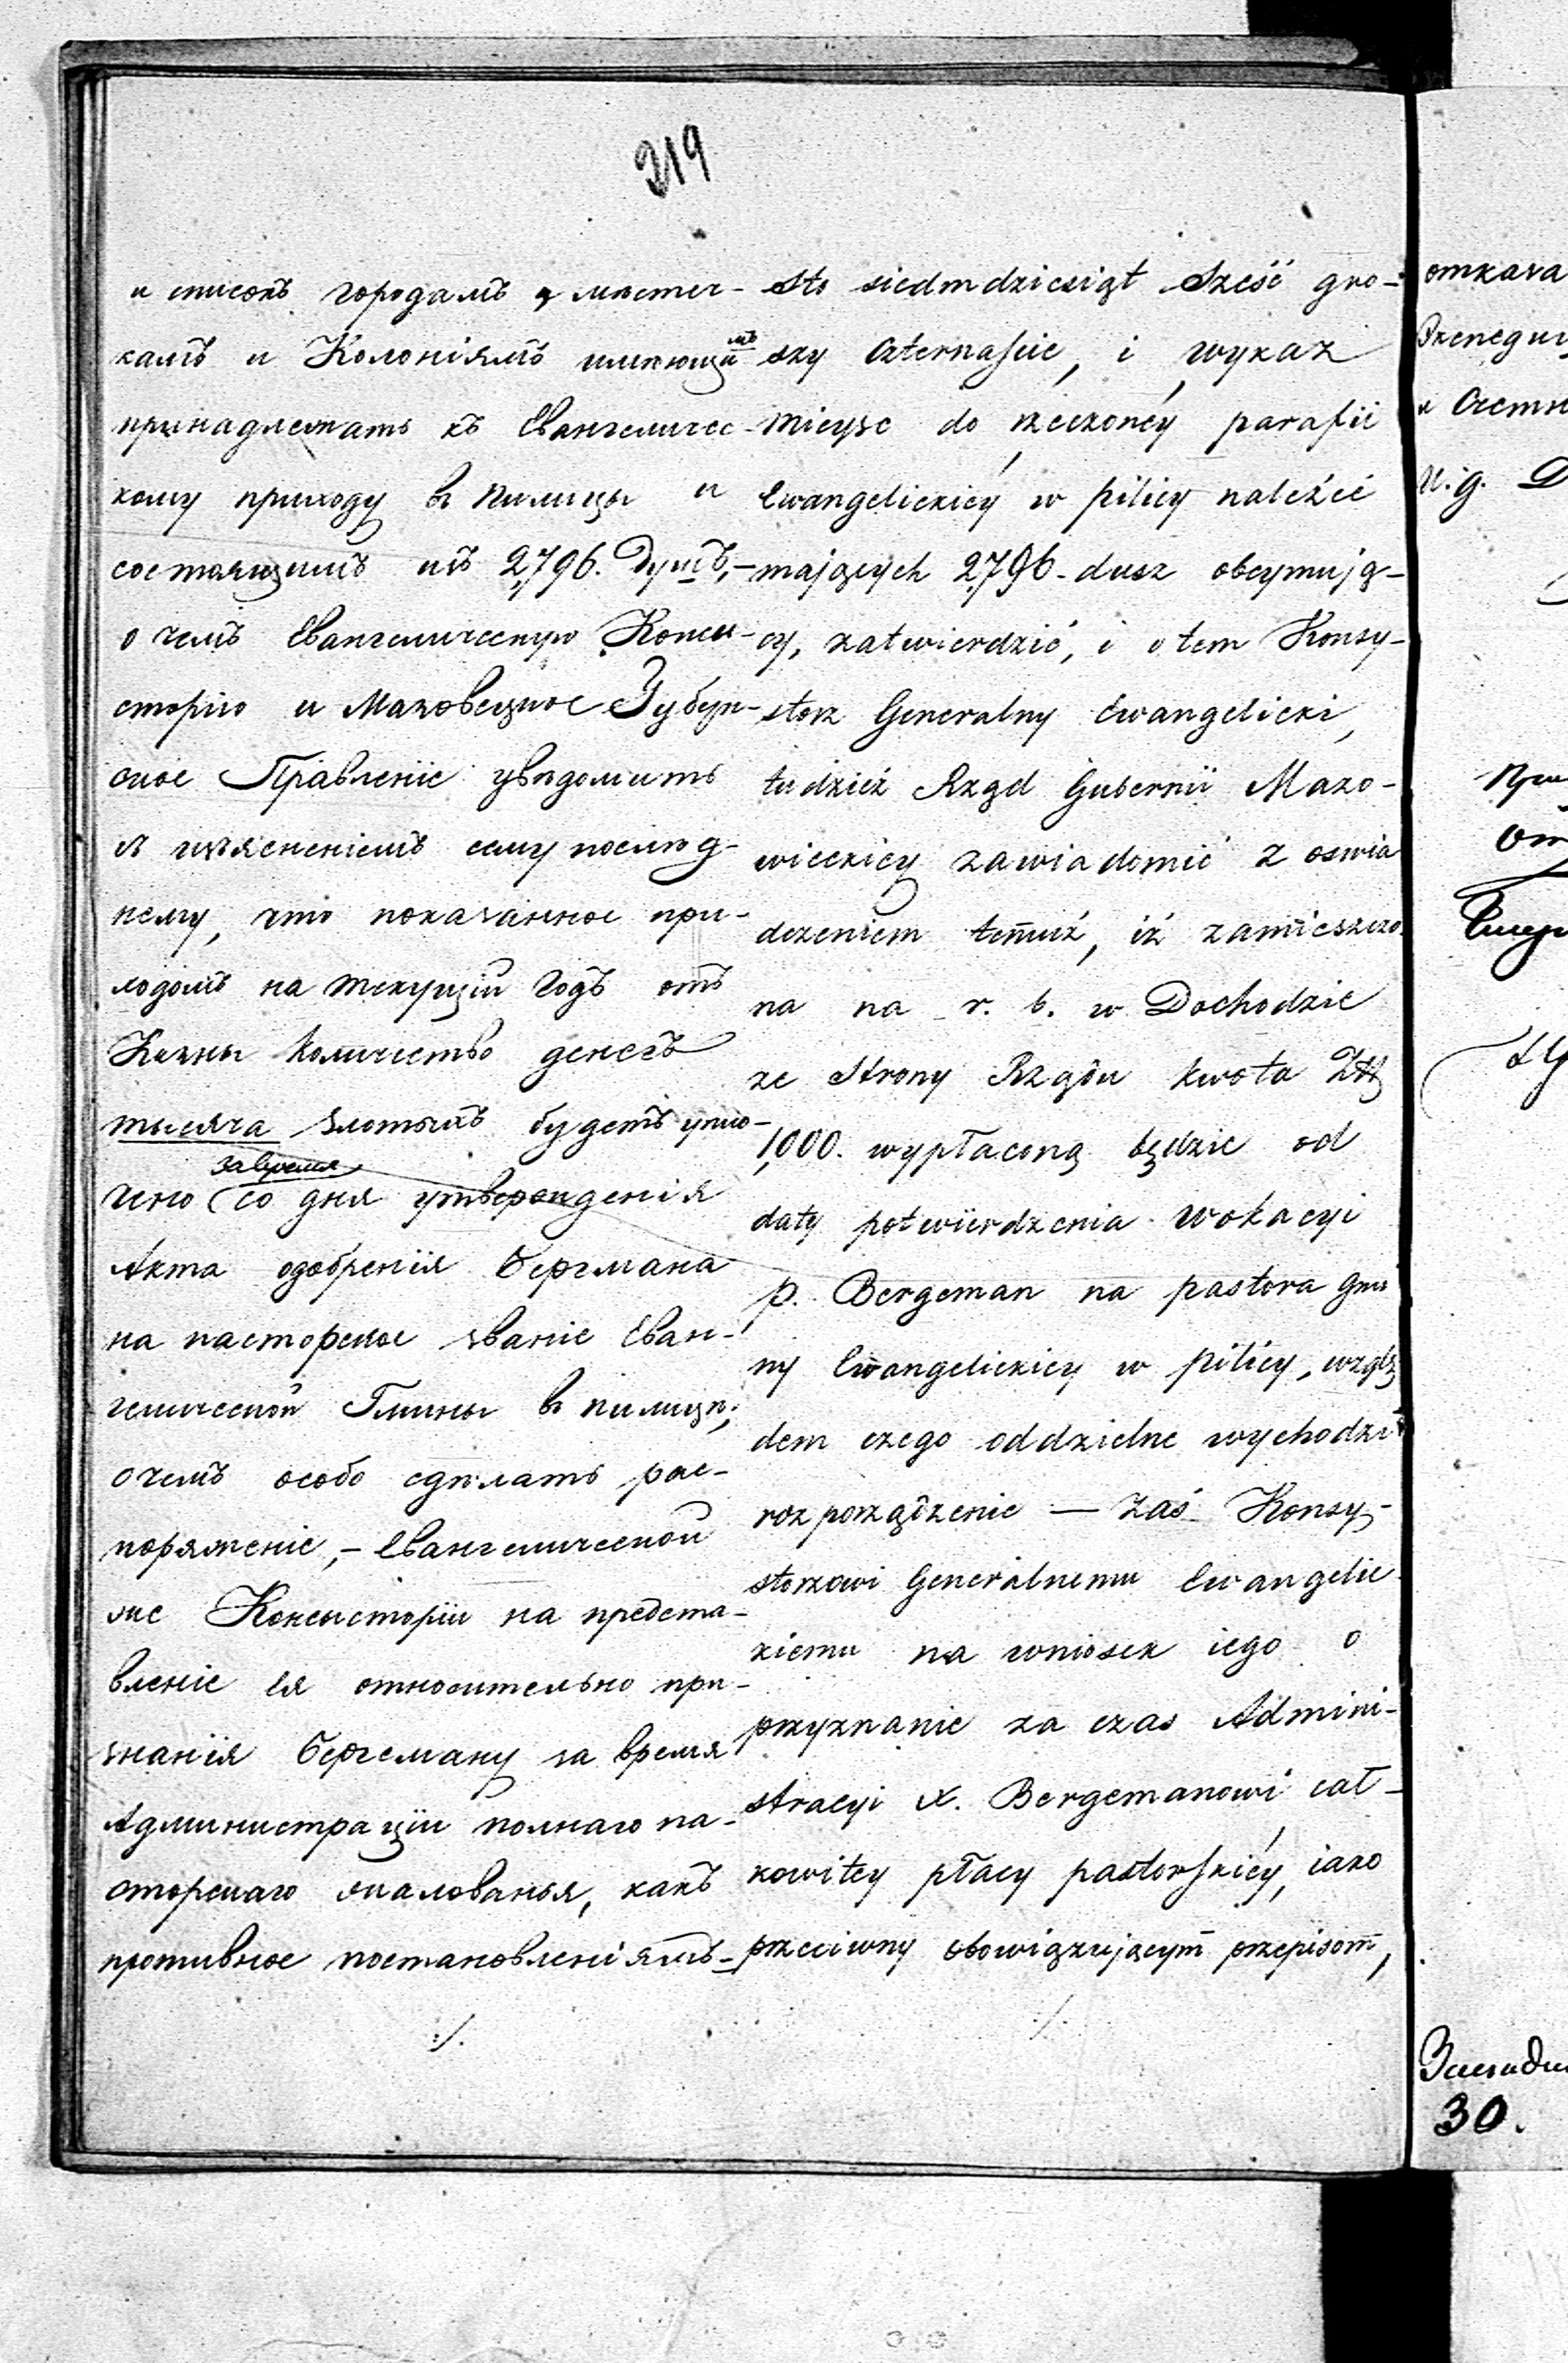 219
и списокъ городамъ и мѣстеч-
камъ и Колоніямъ имѣющимъ
принадлежать къ Евангеличес-
кому приходу въ Пилицы и
состоящимъ изъ 2,796. душъ,-
о чемъ Евангелическую Конси-
сторію и Мазовецкое Губерн-
ское Правленіе увѣдомить
съ изъясненіемъ сему послѣд-
нему, что показанное при-
ходомъ на текущій годъ отъ
Казны количество денегъ
тысяча злотыхъ будетъ упло-
чено (со дня утвержденія
за время
Акта одобренія Бергмана
на пасторское званіе Еван-
гелической Гмины въ Пилицѣ;
о чемъ особо сдѣлать рас-
поряженіе,- Евангелической
же Консисторіи на предста-
вленіе ея относительно при-
знанія Бергеману за время
Администраціи полнаго па-
сторскаго жалованья, какъ
противное постановленіямъ-
:/.
sto siedmdziesiąt sześć gro-
szy czternaście, i wykaz
mieysc do rzeczonéy parafii
Ewangelickiéy w Pilicy należéć
mających 2,796 - dusz obeymują-
cy, zatwierdzić, i o tem Konsy-
storz Generalny Ewangelicki,
tudzież Rząd Gubernii Mazo-
wieckiey zawiadomić z oswia
dczeniem temuż, iż zamieszczo-
na na r. b. w Dochodzie
ze strony Rządu kwota Zł
1,000. wypłaconą będzie od
daty potwierdzenia wokacyi
p. Bergeman na pastora Gmi
ny Ewangelickiey w Pilicy, wzglę
dem czego oddzielne wychodzi
rozporządzenie — zaś Konsy-
storzowi Generalnemu Ewangelic-
kiemu na wniosek iego o
przyznanie za czas Admini-
stracyi X. Bergemanowi cał-
kowitey płacy pastorskiéy, iako
przeciwny obowiązującym przepisom,
:/.
отказа
и
И. д.
При
от
30.